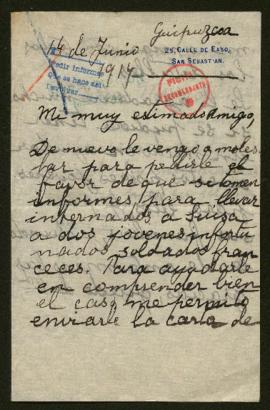 Guipuzcoa
14 de Junio
1917
25, CALLE DE EASO,
SAN SEBASTIAN.
Pedir informes
Que se hace así
Mi muy estimado Amigo,
De nuevo le vengo a moles
tar para pedirle el
favor de que se tomen
informes para llevar
internados a Suiza
a dos jovenes infortu
nados soldados fran
ceces. Para ayudarle
en comprender bien
el caso me permito
enviarle la carta de